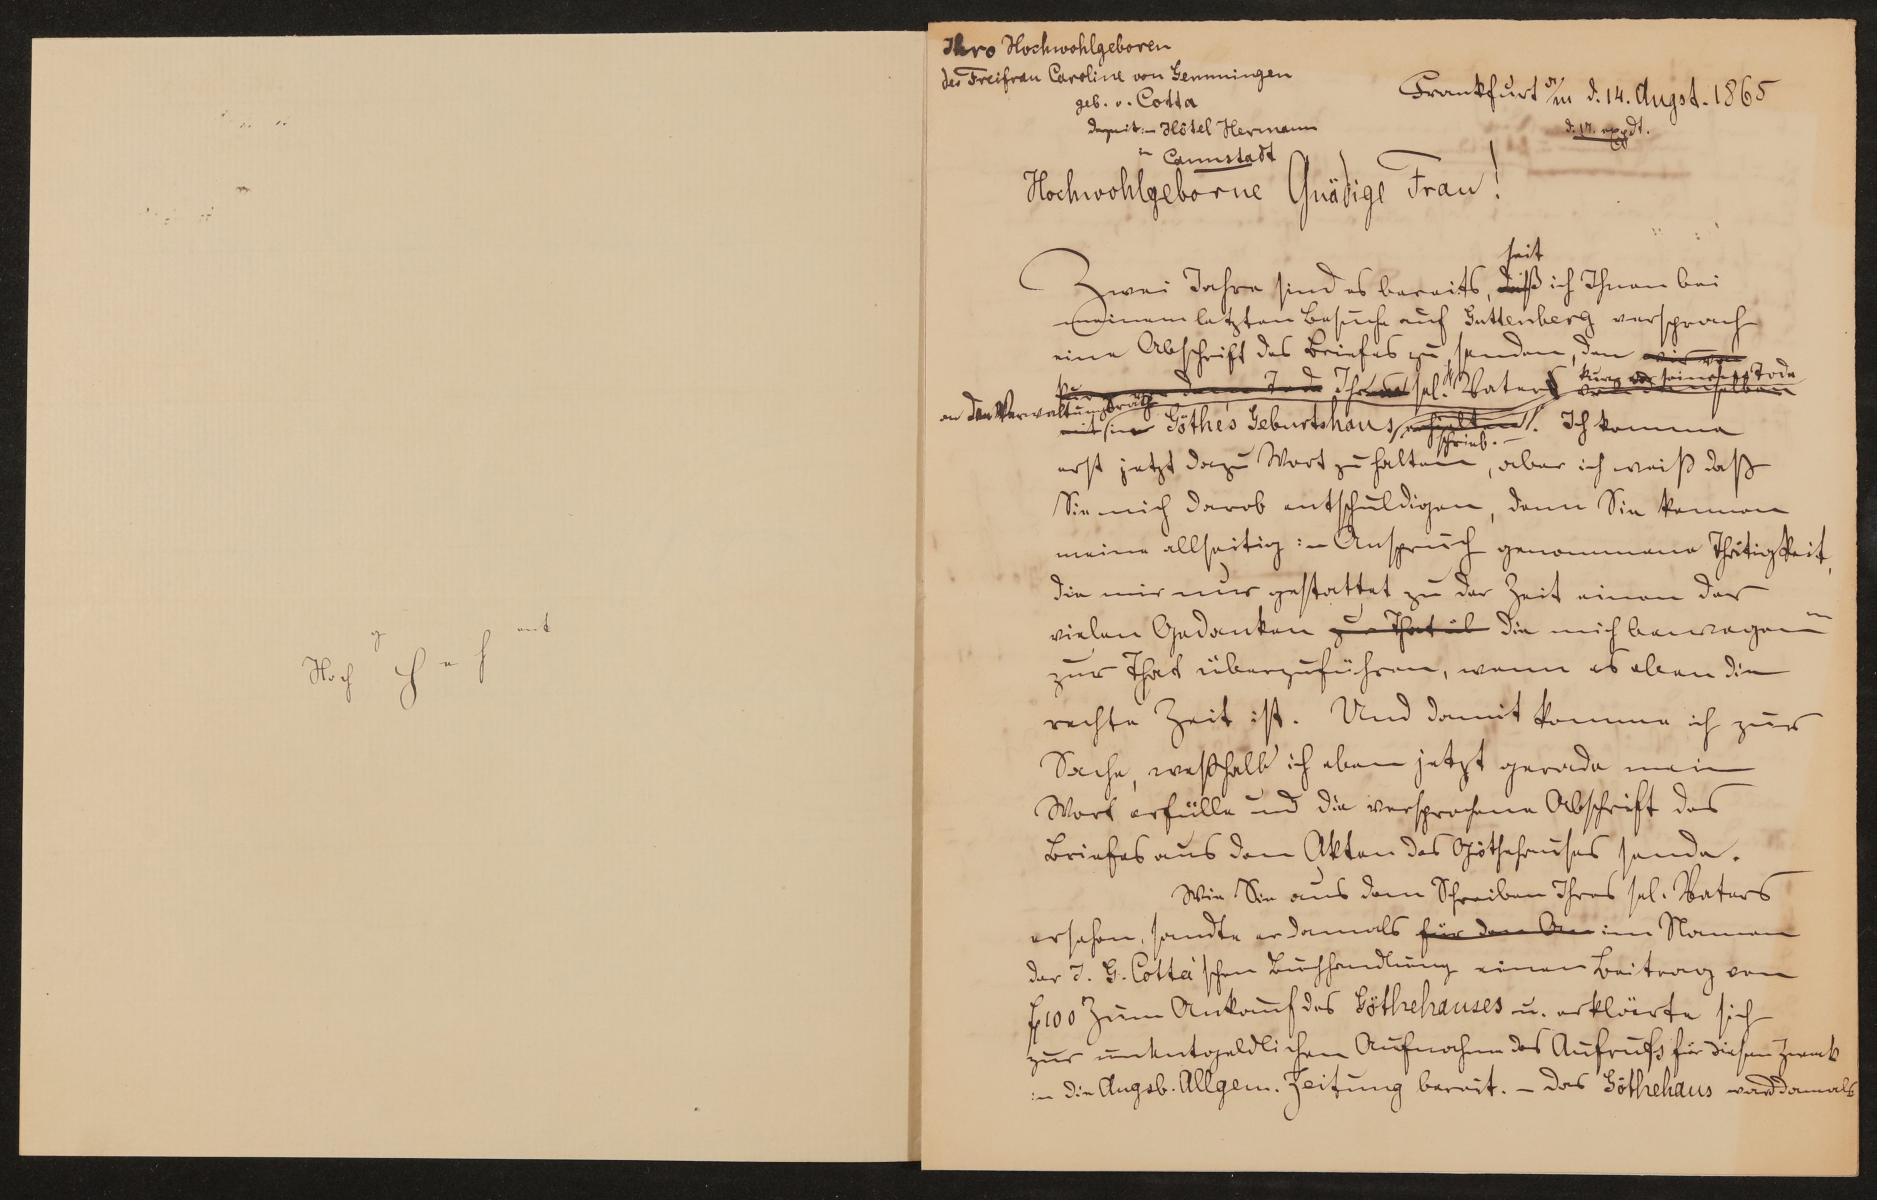 Hoch
Ihro Hochwohlgeboren
der Freifrau Caroline von Gemmingen
geb. v. Cotta
derzeit: Hôtel Hermann
in Cannstadt
Frankfurt a/m d. 14. Augst. 1865
d. 17. expdt.
Hochwohlgeborne Gnädige Frau!
seit
Zwei Jahre sind es bereits, daß ich Ihnen bei
meinem letzten Besuche auf Guttenberg versprach
eine Abschrift des Briefes zu senden, den wir von
dem Tode Ihr sel. Vater kurz vor seinem Tode
an den Verwaltungsrath
Göthes Geburtshaus erhalten schrieb. – Ich komme
erst jetzt dazu Wort zu halten, aber ich weiß daß
Sie mich darob entschuldigen, denn Sie kennen
meine allseitig in Anspruch genommene Thätigkeit,
die mir nur gestattet zu der Zeit einen der
vielen Gedanken zur That üb die mich bewegen
zur That überzuführen, wenn es eben die
rechte Zeit ist. Und damit komme ich zur
Sache, weßhalb ich eben jetzt gerade mein
Wort erfülle und die versprochene Abschrift des
Briefes aus den Akten des Göthehauses sende.
Wie Sie aus dem Schreiben Ihres sel. Vaters
ersehen, sandte er damals für den An im Namen
der J. G. Cotta'schen Buchhandlung einen Beitrag von
f 100 zum Ankauf des Göthehauses u. erklärte sich
zur unentgeldlichen Aufnahme des Aufrufs für diesen Zweck
in die Augsb. Allgem. Zeitung bereit. – Das Göthehaus ward damals